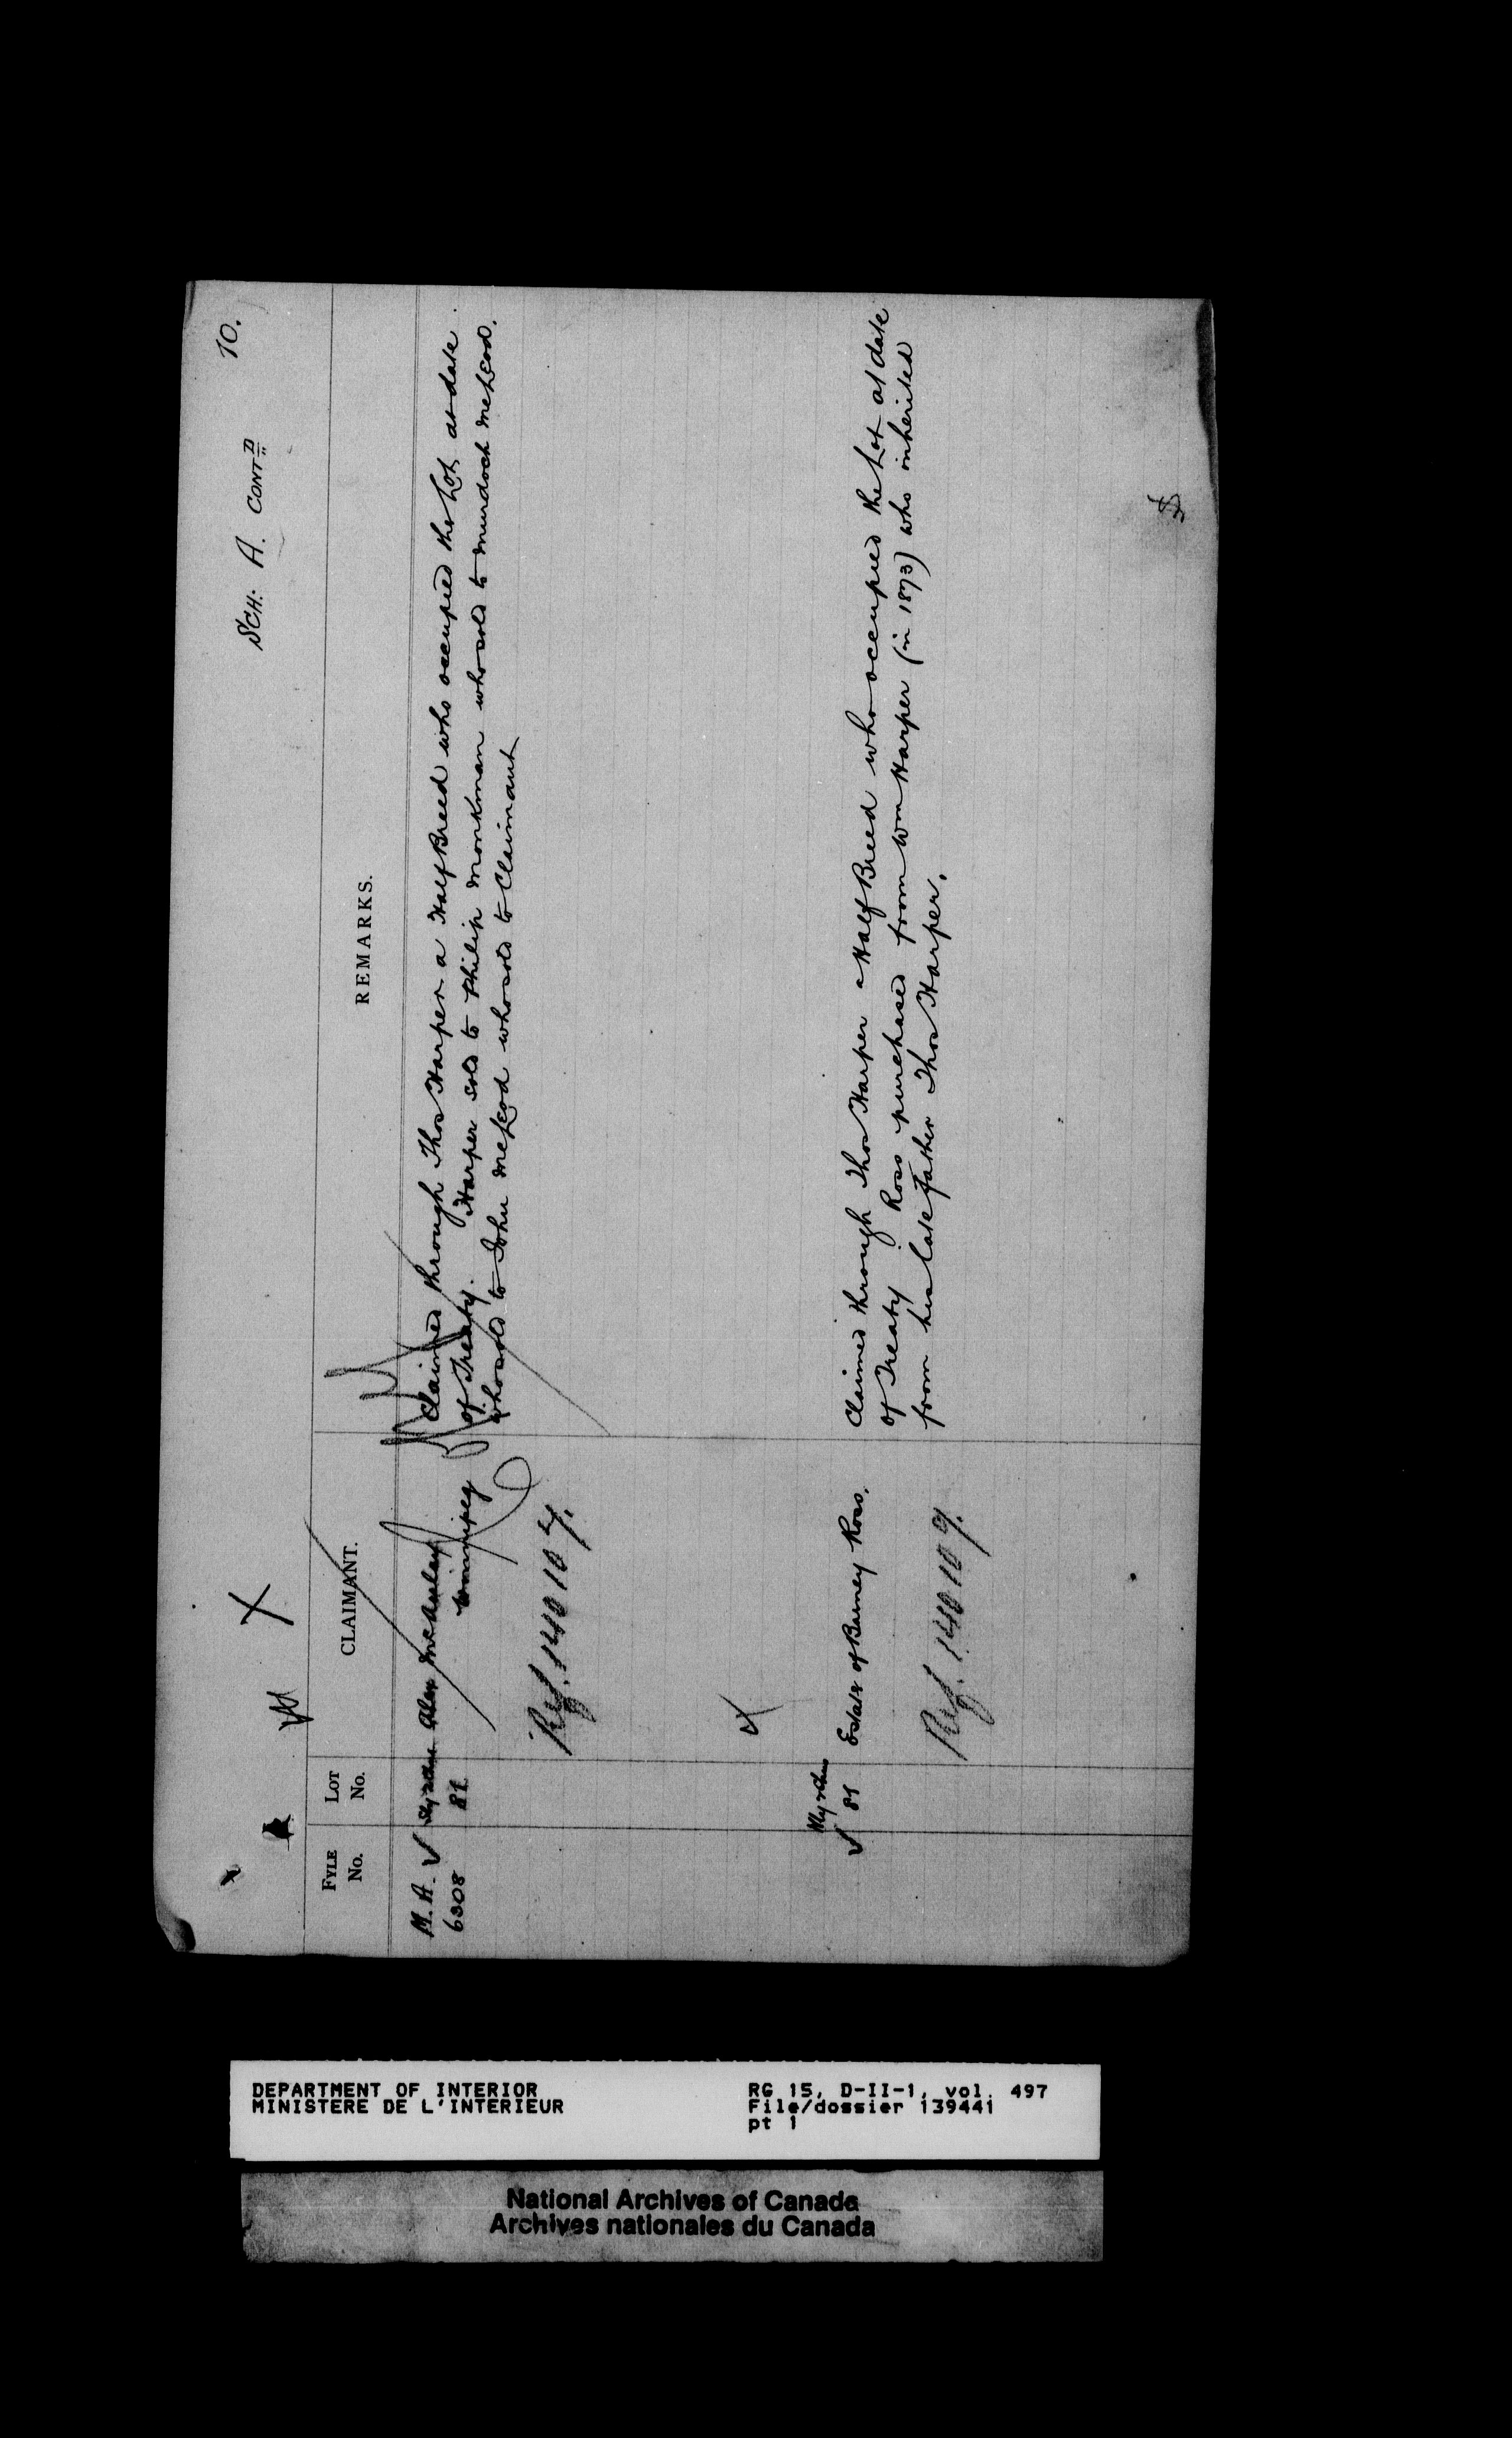 SCH: A. CONTD 10.
FYLE No. LOT No. CLAIMANT. REMARKS.
M. A. 6308
81
Alex McAuley
Winnipeg
Claimed through Thos Harper a Half Breed who occupied the Lot at date
of Treaty. Harper sold to Philip Monkman who sold to Murdoch McLeod.
who sold to John McLeod who sold to Claimant
Ref. 140107.
81
Estate of Barney Ross.
Claimed through Thos Harper a Half Breed who occupied the Lot at date
of Treaty Ross purchased from Wm Harper (in 1873) who inherited
from his late father Thos Harper.
Ref. 140109.
DEPARTMENT OF INTERIOR
MINISTERE DE L'INTERIEUR
RG 15, D-II-1, vol. 497
File/dossier 139441
pt 1
National Archives of Canada
Archives nationales du Canada